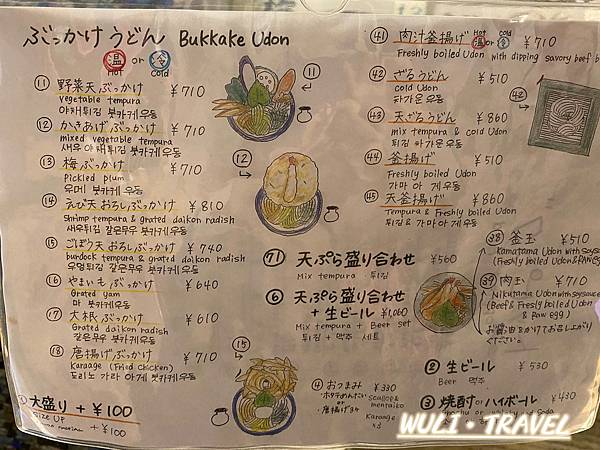 ぶっかけうどん Bukkake Udon
温 or 冷
Hot Cold
⑪ 野菜天ぶっかけ ￥710
vegetable tempura
야채튀김 붓카케우동
⑫ かきあげぶっかけ ￥710
mixed vegetable tempura
새우 야채튀김 붓카케우동
⑬ 梅ぶっかけ ￥710
Pickled plum
우메 붓카케우동
⑭ えび天おろしぶっかけ ￥810
Shrimp tempura & grated daikon radish
새우튀김 갈은무우 붓카케우동
⑮ ごぼう天おろしぶっかけ ￥740
burdock tempura & grated daikon radish
우엉튀김 갈은무우 붓카케우동
⑯ やまいもぶっかけ ￥640
Grated yam
마 붓카케우동
⑰ 大根ぶっかけ ￥610
Grated daikon radish
갈은무우 붓카케우동
⑱ 唐揚げぶっかけ ￥710
Karaage (Fried chicken)
토리노 가라아게 붓카케우동
① 大盛り +￥100
Size UP
+￥100
⑪
⑫
⑮
㊶ 肉汁釜揚げ 温 or 冷 ￥710
Hot Cold
Freshly boiled Udon with dipping savory beef
㊷ ざるうどん ￥510
cold Udon
자가운 우동
㊷
㊸ 天ざるうどん ￥860
mix tempura & cold Udon
튀김 차가운우동
㊹ 釜揚げ ￥510
Freshly boiled Udon
가마 아게 우동
㊺ 天釜揚げ ￥860
Tempura & Freshly boiled Udon
튀김 & 가마아게 우동
71 天ぷら盛り合わせ ￥560
Mix tempura 튀김
⑥ 天ぷら盛り合わせ
+ 生ビール ￥1,060
Mix tempura + Beer set
튀김 + 맥주 세트
㊳ 釜玉 ￥510
Kamatama Udon with soysauce
(Freshly boiled Udon & RAW egg)
㊴ 肉玉 ￥710
Nikutama Udon with soysauce
(Beef & Freshly boiled Udon
& Raw egg)
お醤油をかけてお召し上がり
ください。
② 生ビール ￥530
Beer 맥주
④ おつまみ ￥330
・ホタテめんたい
or
・唐揚げ3ケ
Scallop &
mentaiko
Karaage
×3
③ 焼酎 or ハイボール ￥430
WULI・TRAVEL